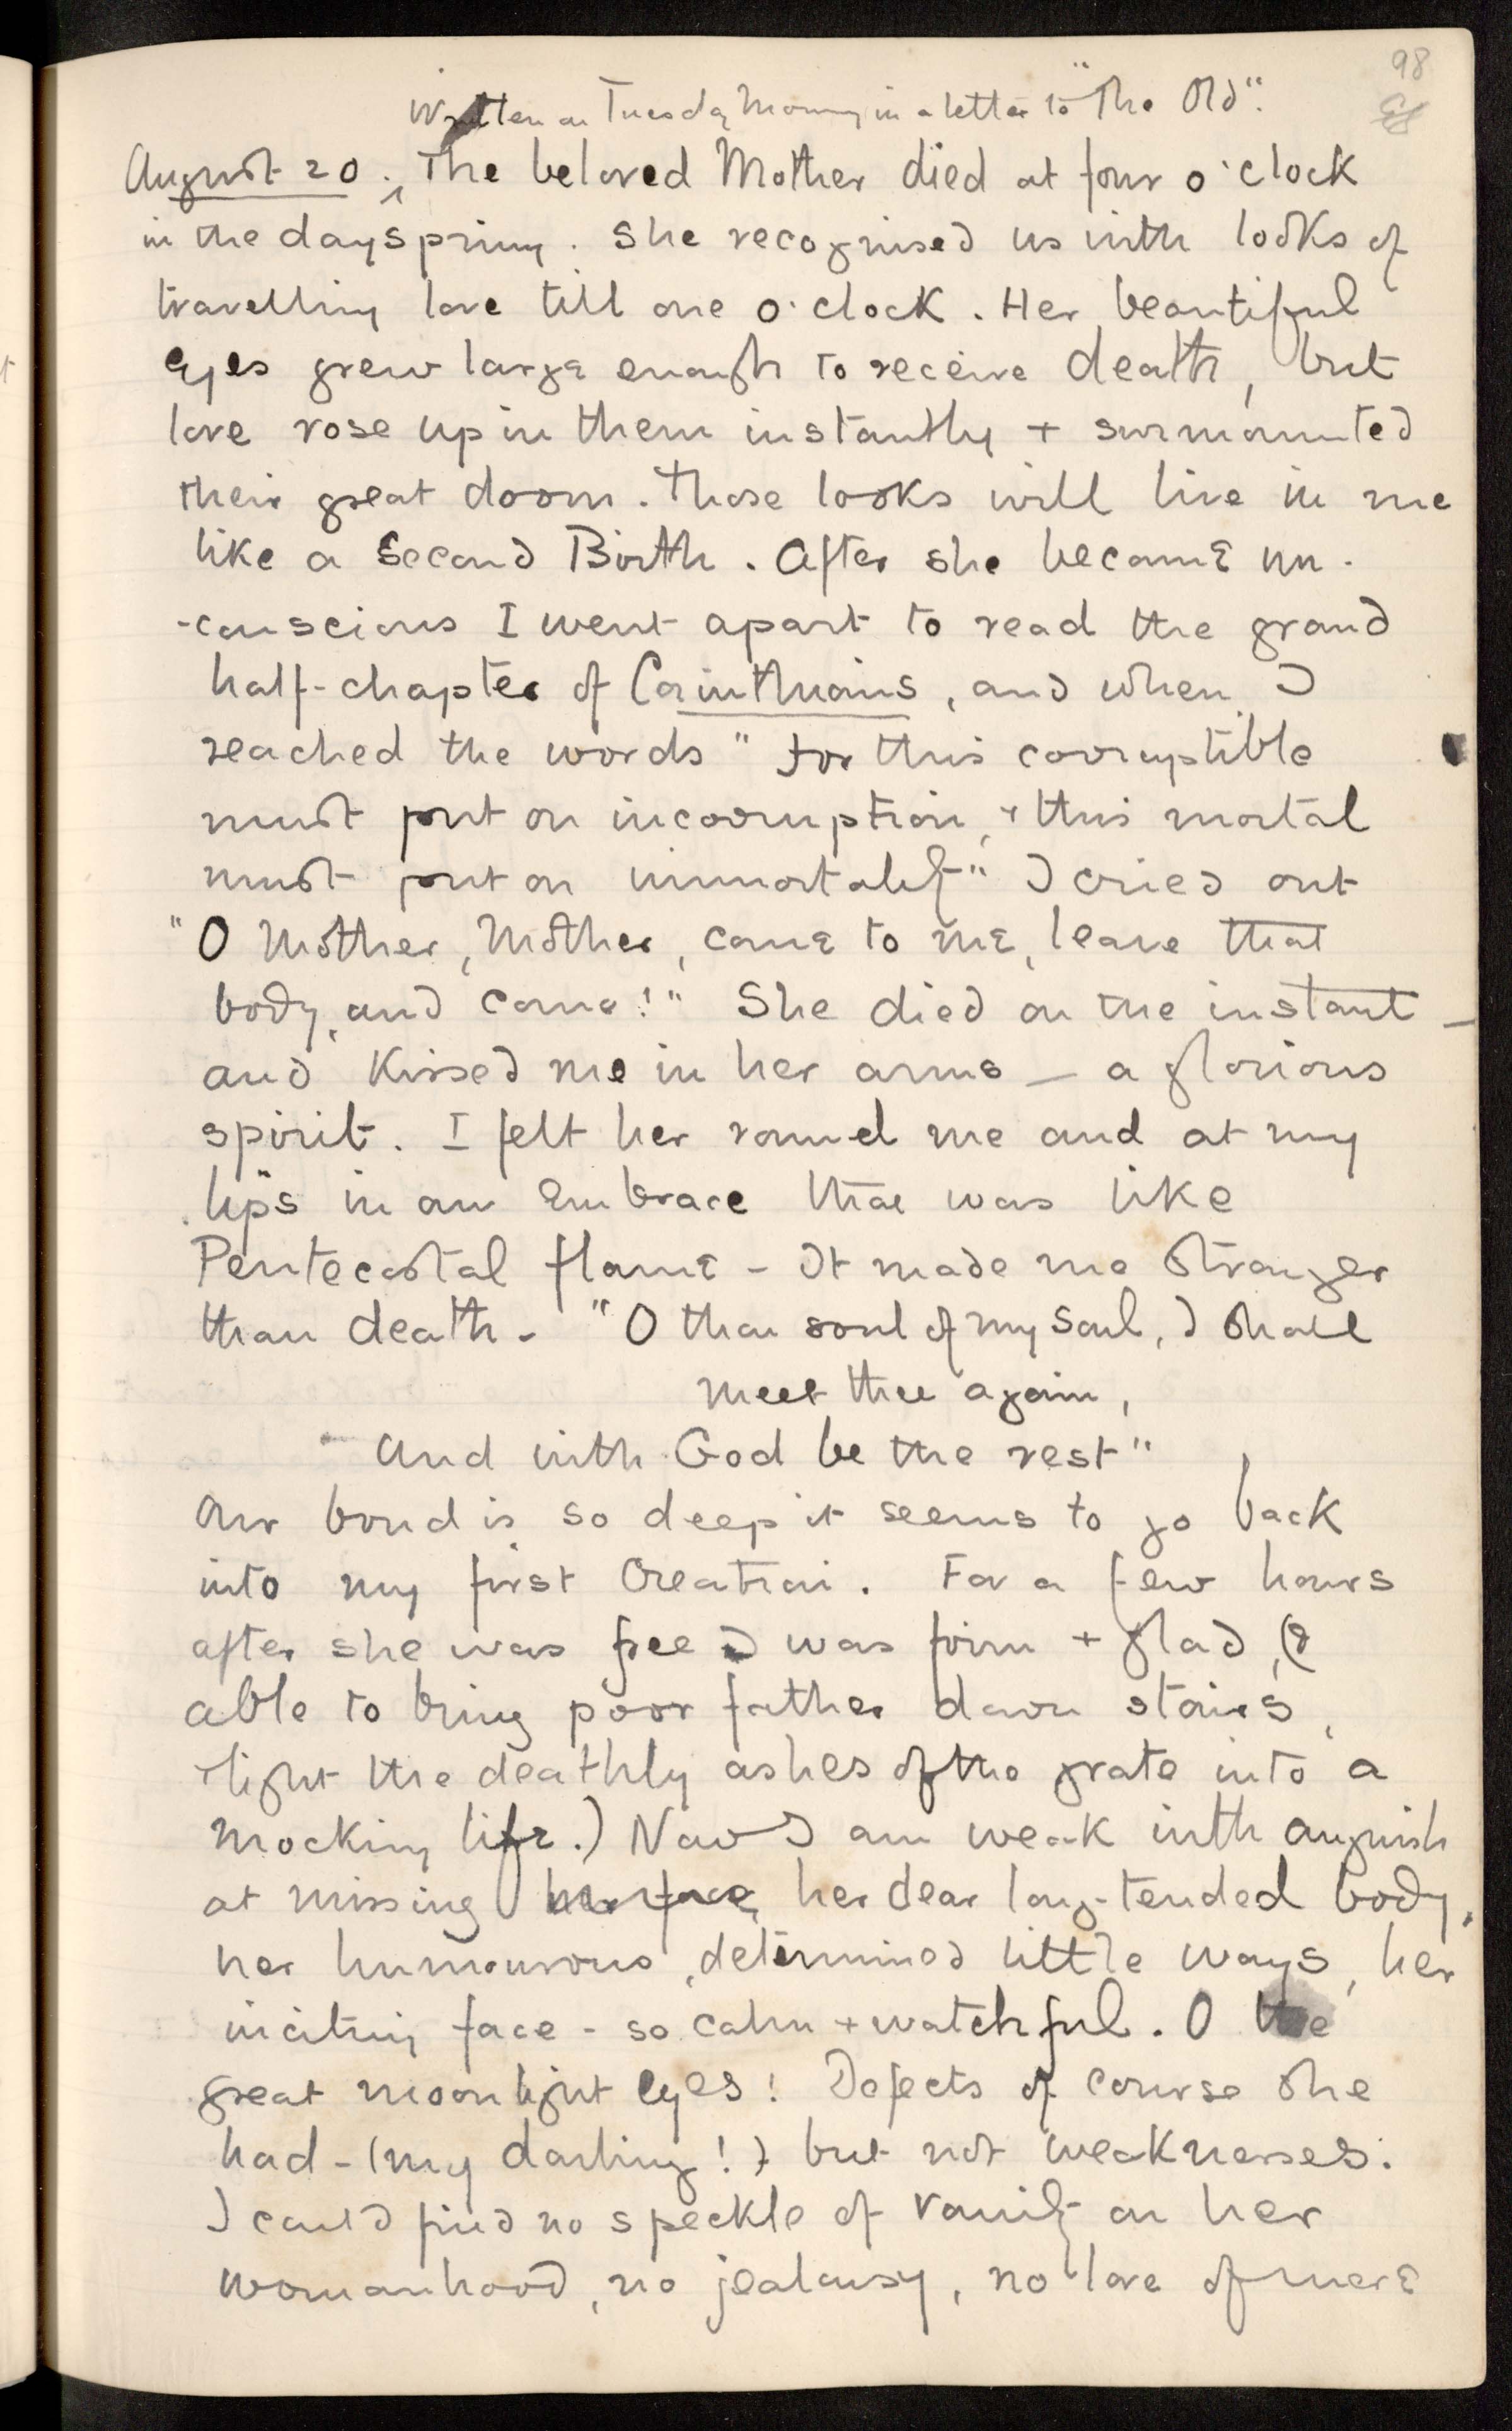 98
Written on Tuesday Morning in a letter to "The Old".
August 20. ^ The beloved Mother died at four o'clock
in the dayspring. She recognised us with looks of
travelling love till one o'clock. Her beautiful
eyes grew large enough to receive death, but
love rose up in them instantly + surmounted
their great doom. Those looks will live in me
like a Second Birth. After she became un-
-conscious I went apart to read the grand
half-chapter of Corinthians, and when I
reached the words "For this corruptible
must put on incorruption, + this mortal
must put on immortality" I cried out
"O Mother, Mother, come to me, leave that
body, and come!" She died on the instant —
and kissed me in her arms — a glorious
spirit. I felt her round me and at my
lips in an embrace that was like
Pentecostal flame — It made me stronger
than death — "O thou soul of my soul, I shall
meet thee again,
And with God be the rest"
Our bond is so deep it seems to go back
into my first Creation. For a few hours
after she was free I was firm + glad, (&
able to bring poor father down stairs,
+ light the deathly ashes of the grate into a
mocking life.) Now I am weak with anguish
at missing her face, her dear long-tended body,
her humourous, determined little ways, her
inciting face - so calm + watchful. O the
great moonlight eyes! Defects of course she
had - (my darling!) but not weaknesses.
I could find no speckle of vanity on her
womanhood, no jealousy, no love of mere